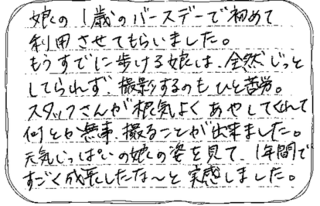 娘の1歳のバースデーで初めて
利用させてもらいました。
もうすでに歩ける娘は、全然じっと
してられず、撮影するのもひと苦労。
スタッフさんが根気よくあやしてくれて
何とか無事、撮ることが出来ました。
元気いっぱいの娘の姿を見て、1年間で
すごく成長したな〜と実感しました。